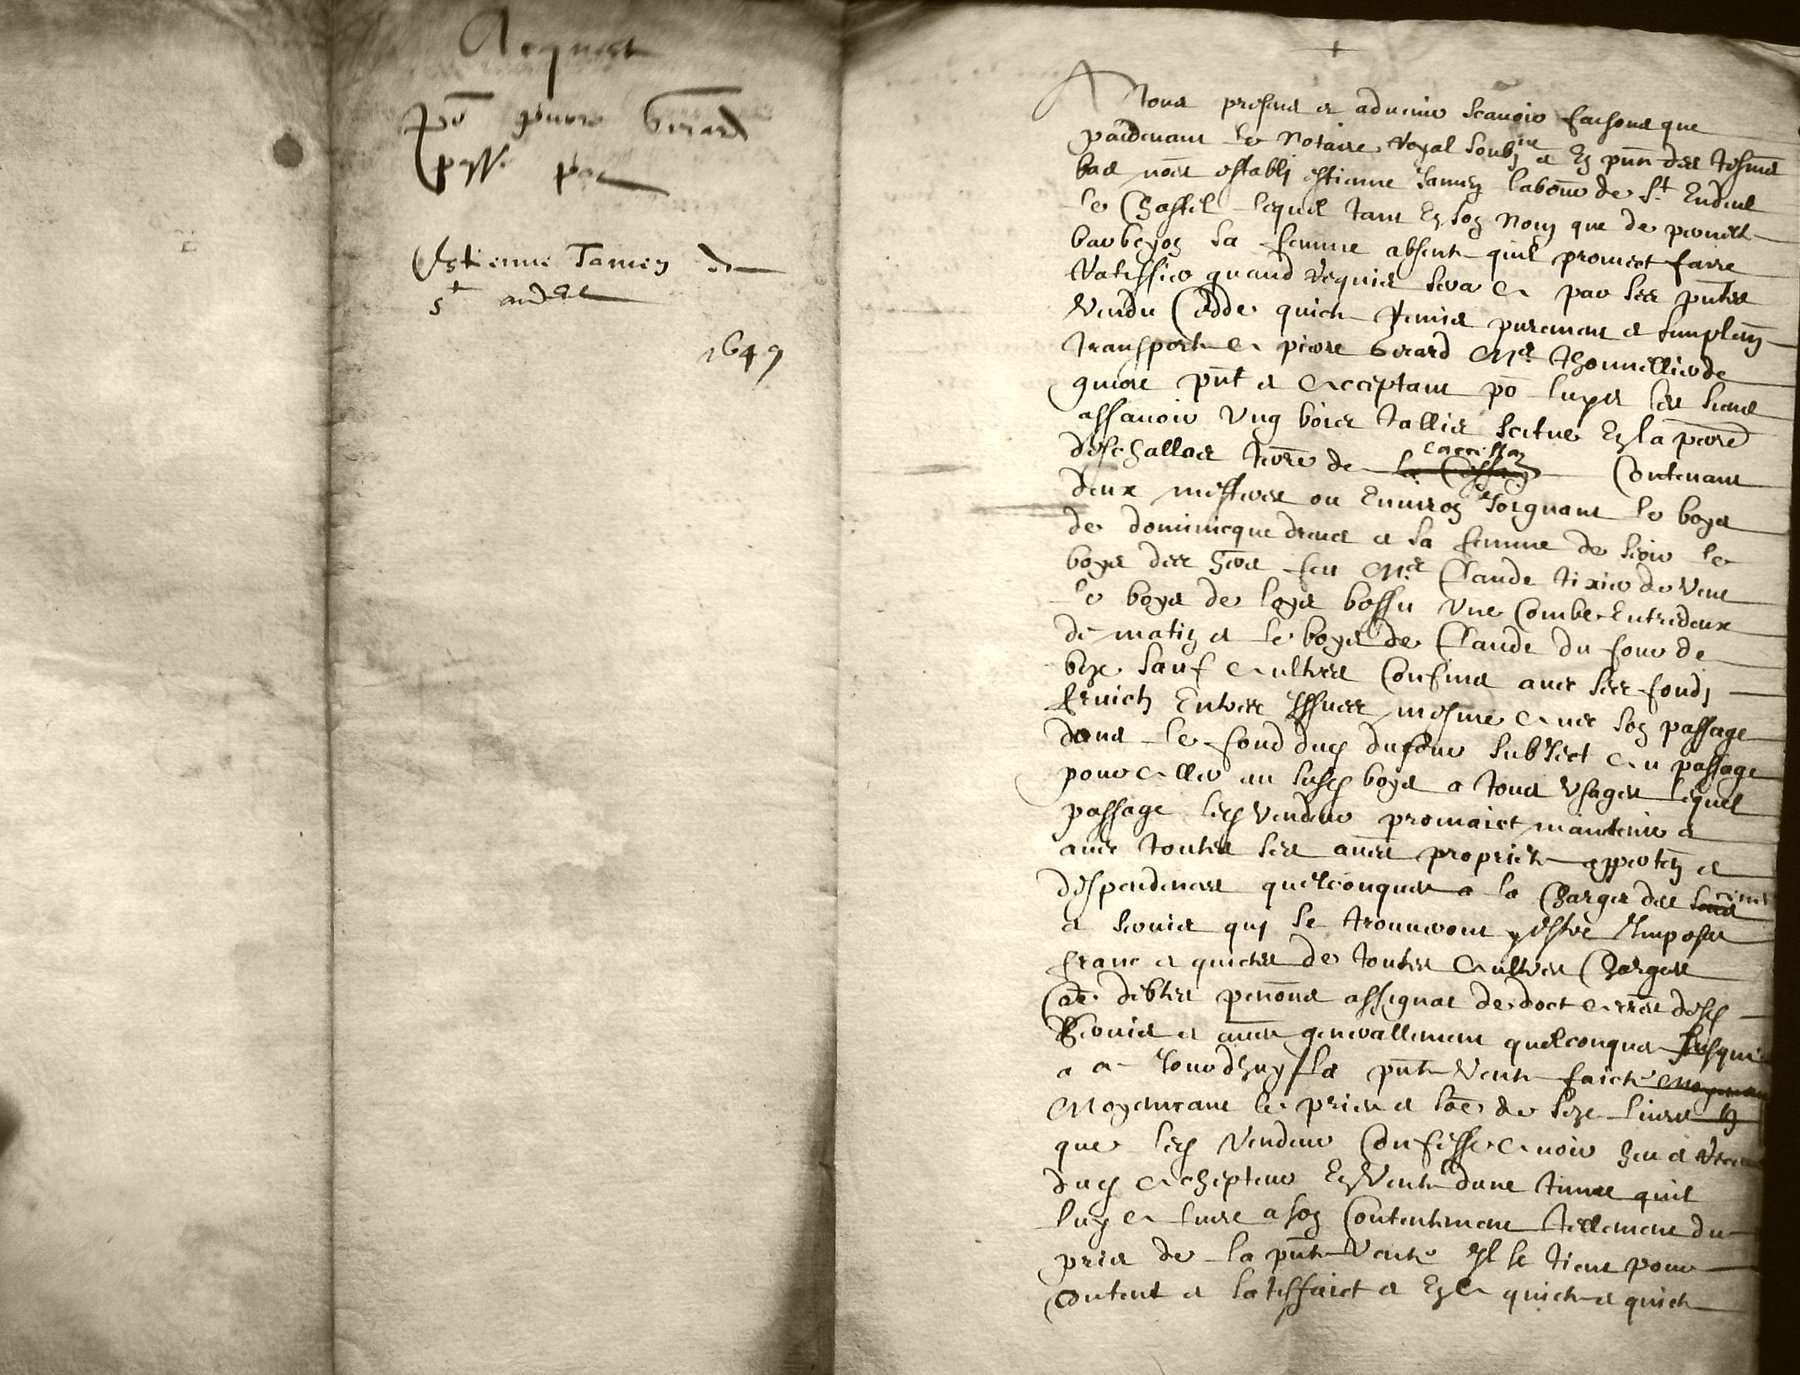 Acquest
po pierre Girard
passé par
Estienne Jamen de
st andéol
1649
A Tous presens et advenir scavoir faisons que
pardevant le notaire royal soubz ne et en pnce des tesmes
bas nomes establi estienne Jamen laboure de St Endeol
le Chastel lequel tant en son nom que de
sa femme absente quil promect faire
ratiffier quand requis sera a par ses pntes
vendu Cedde quicte remis purement et simplemen
transporte a pierre Girard Me thonnellier de
giuore pnt et acceptant po luy et les siens
assavoir ung bois tallis scitue en la parre
deschallas terre de Contenant
deux mesteres ou Environ Joignant le boys
de dominicque et sa femme de soir le
boys des hers feu Me Claude tixier de vent
le boys de loys bossu une Combe Entredeux
de matin et le boys de Claude du four de
bize sauf aultres Confins avec ses fondz
fruictz Entrees Yssues mesme avec son passage
dans le fond dud dufour subject au passage
pour aller au susd boys a tous usages lequel
passage led vendeur promaict maintenir et
avec toutes ses aues proprietes apperten et
despendences quelconques a la Charge des
et servis quj se trouveront y estre Imposes
franc et quicte de toutes aultres Charges
debtes pentions assignat de doct arres desd
servis et aues generallement quelconques Jusques
a a Jourdhuy la pnte vente faicte
Moyennant le prix et some de seze livres
que led vendeur Confesse avoir heu et
dud achepteur En vente dune quil
luy a livre a son Contentement tellement du
prix de la pnte vente Il se tient pour
Content et satisffaict et En a quicte et quicte